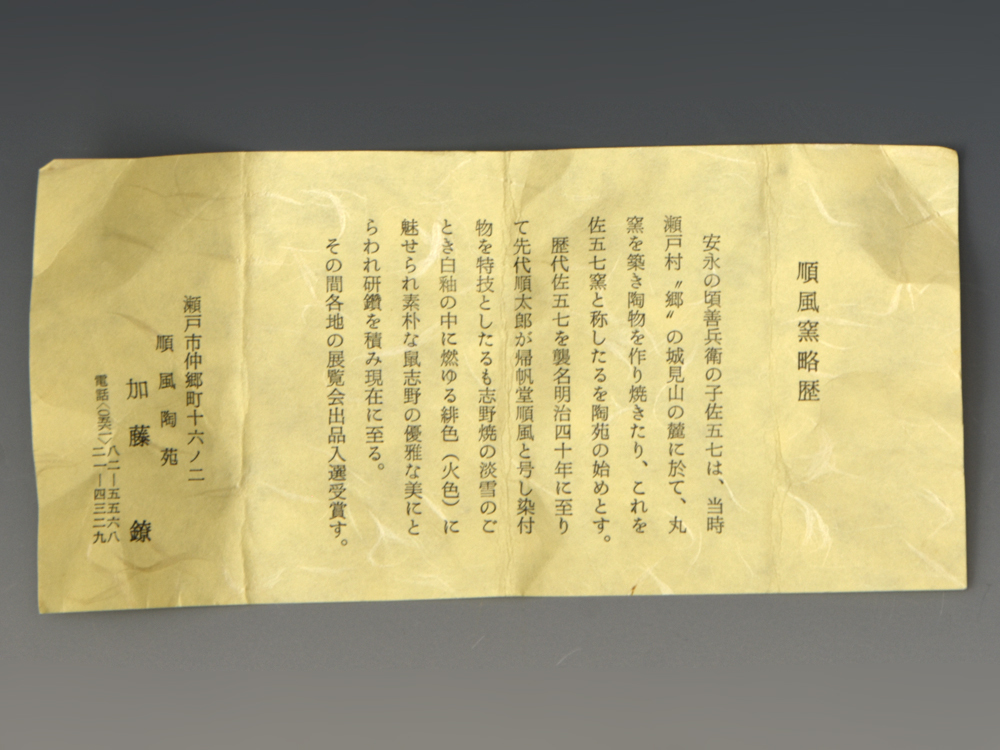 順風窯略歴
安永の頃善兵衛の子佐五七は、当時
瀬戸村〝郷〟の城見山の麓に於て、丸
窯を築き陶物を作り焼きたり、これを
佐五七窯と称したるを陶苑の始めとす。
歴代佐五七を襲名明治四十年に至り
て先代順太郎が帰帆堂順風と号し染付
物を特技としたるも志野焼の淡雪のご
とき白釉の中に燃ゆる緋色（火色）に
魅せられ素朴な鼠志野の優雅な美にと
らわれ研鑽を積み現在に至る。
その間各地の展覧会出品入選受賞す。
瀬戸市仲郷町十六ノ二
順風陶苑
加藤鐐
電話〈〇五六一〉八二―五五六八
二一―四三二九